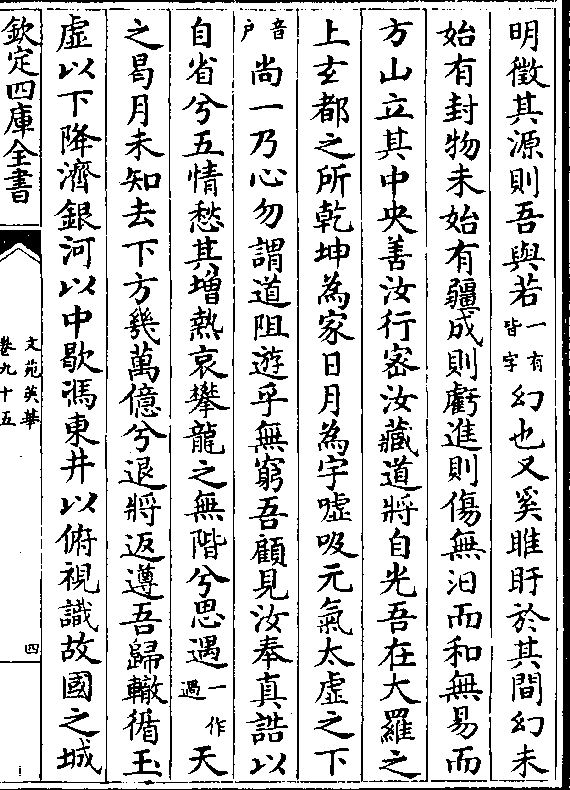 明徵其源則吾與若一有皆字幻也又奚睢盱於其間幻未
始有封物未始有疆成則虧進則傷無汩而和無易而
方山立其中央善汝行密汝藏道將自光吾在大羅之
上玄都之所乾坤為家日月為宇噓吸元氣太虛之下
音户尚一乃心勿謂道阻遊乎無窮吾顧見汝奉真誥以
自省兮五情愁其增熱哀攀龍之無階兮思遇一作遇天
之曷月未知去下方幾萬億兮退將返遵吾歸轍循玉
虛以下降濟銀河以中歇馮東井以俯視識故國之城
欽定四庫全書
文苑英華
卷九十五
四